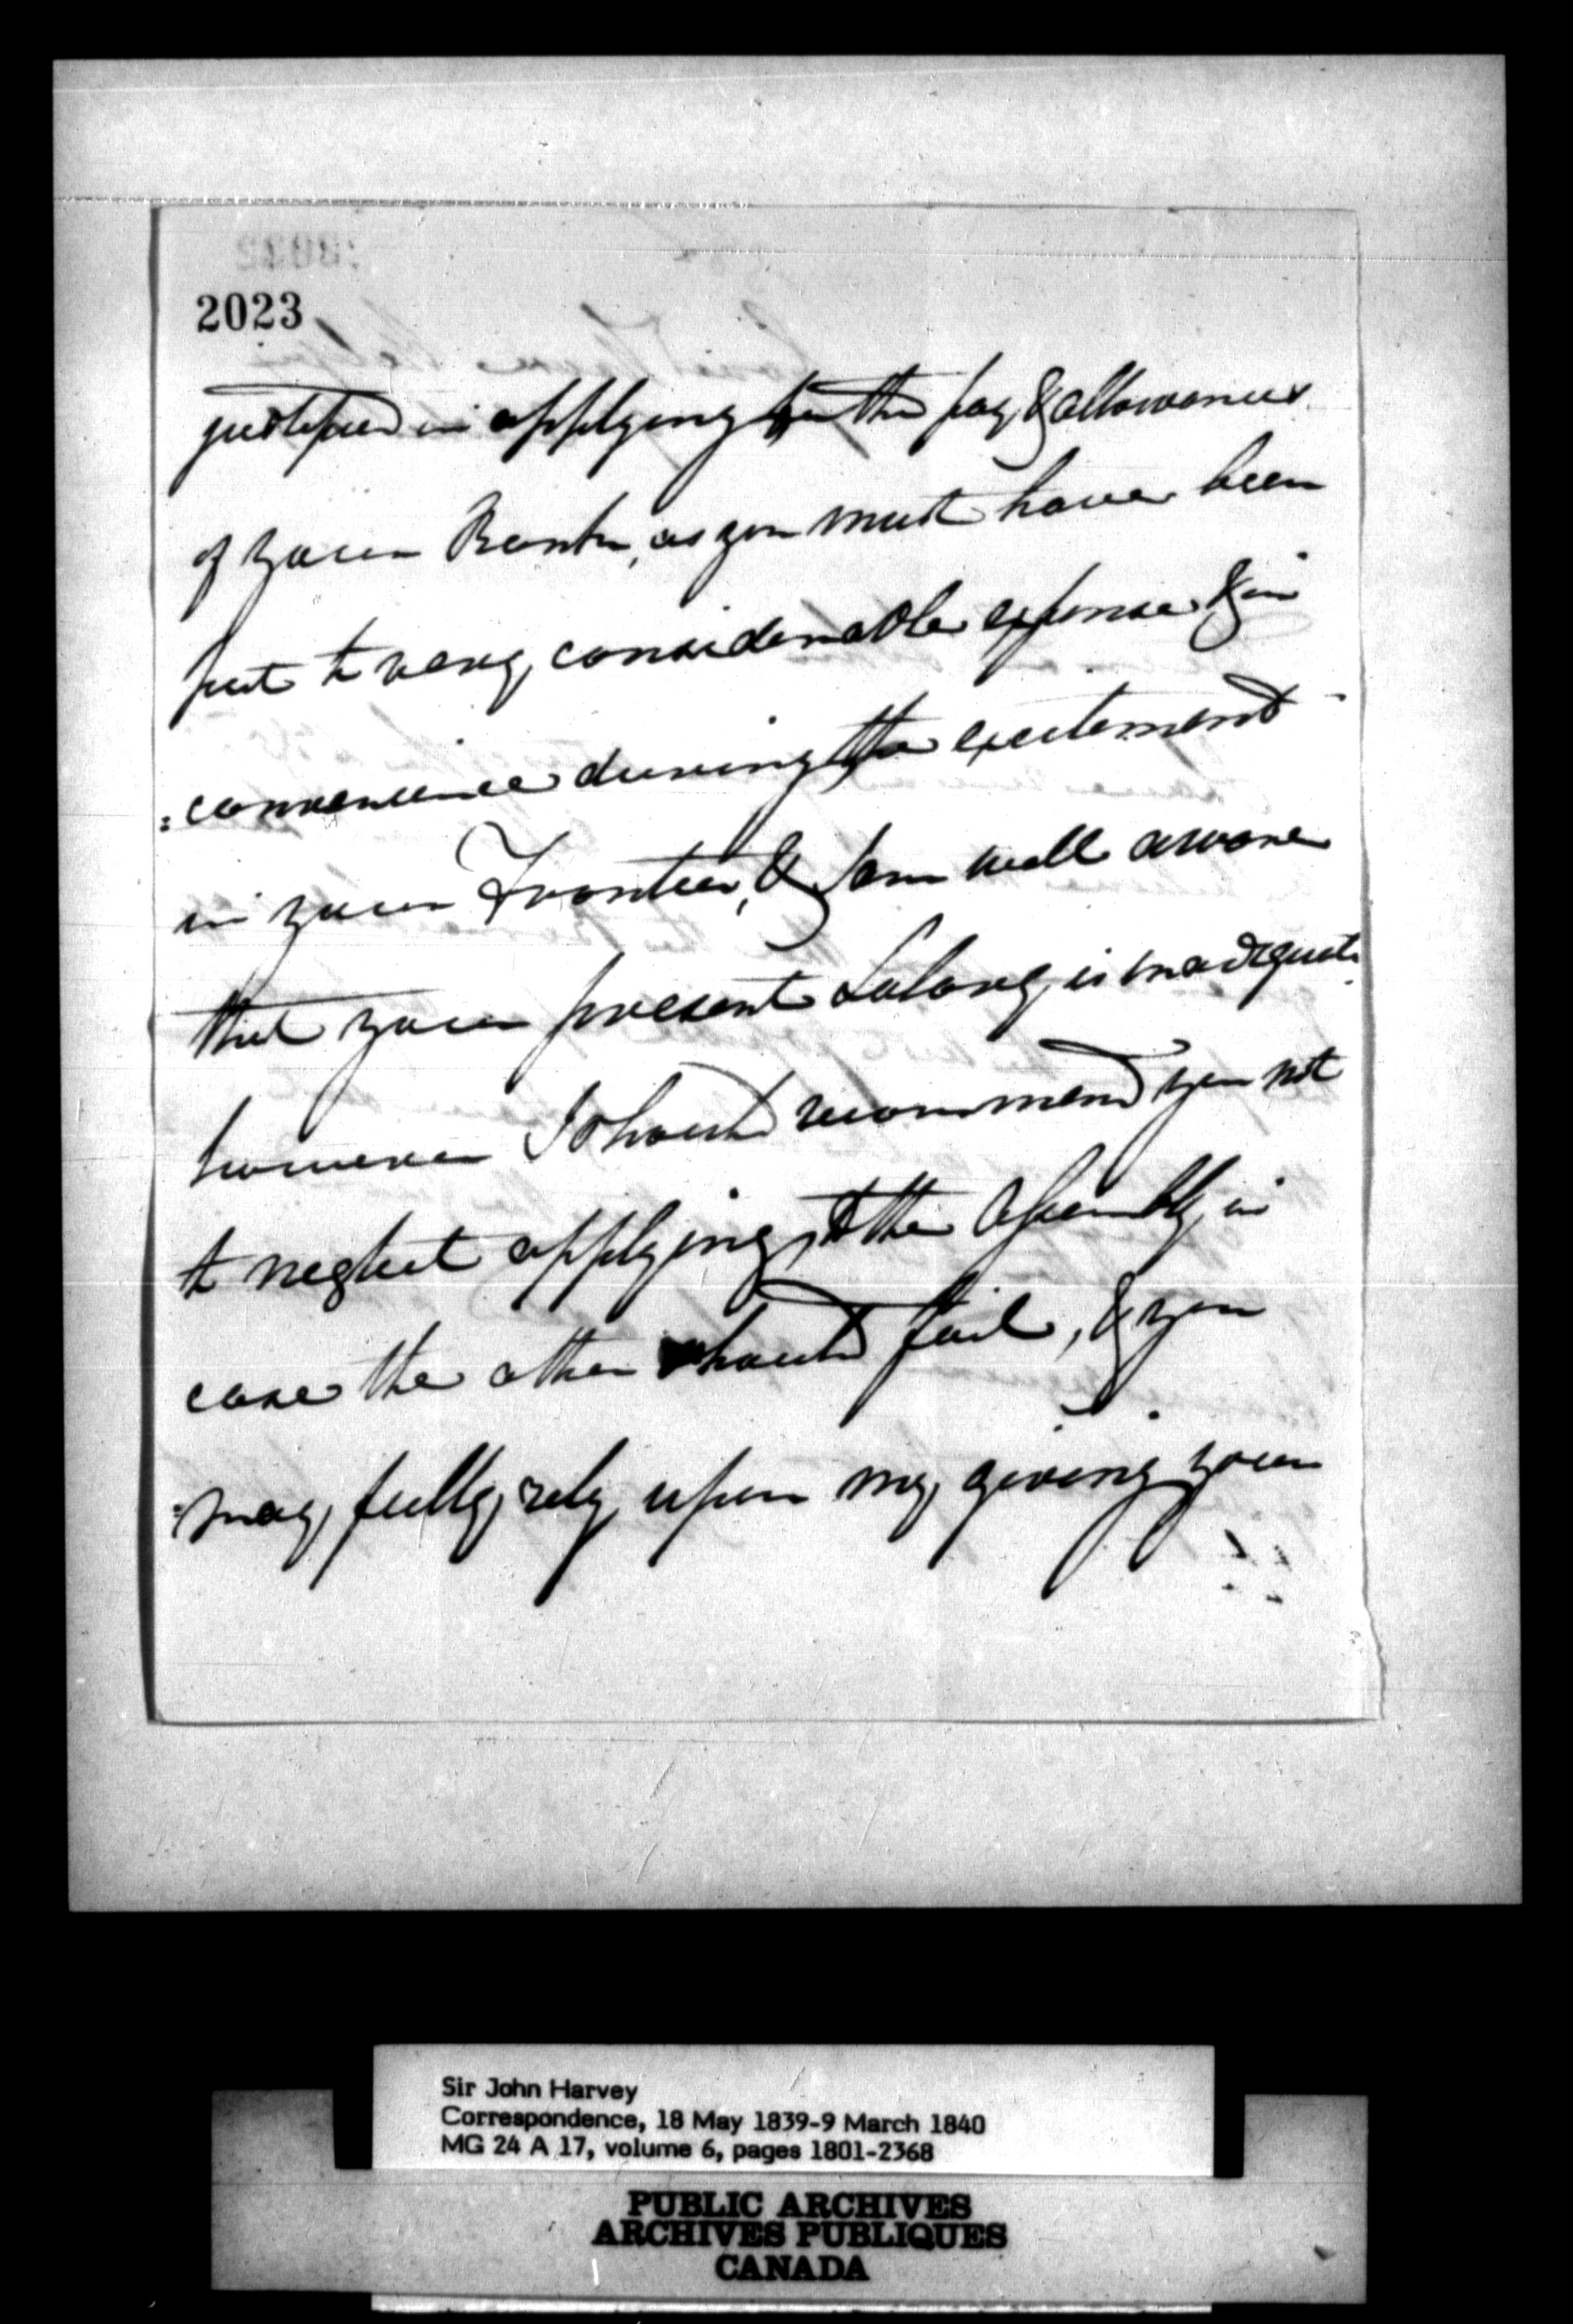 2023
justified in applying for the pay & allowances
of your Rank, as you must have been
put to very considerable expense & in
=convenience during the excitement
in your Frontier, & I am well aware
that your present Salary, is inadequate.
however I should recommend you not
to neglect applying to the Assembly, in
case the other should fail, & you
may fully rely upon my giving your
Sir John Harvey
Correspondence, 18 May 1839-9 March 1840
MG 24 A 17, volume 6, pages 1801-2368
PUBLIC ARCHIVES
ARCHIVES PUBLIQUES
CANADA